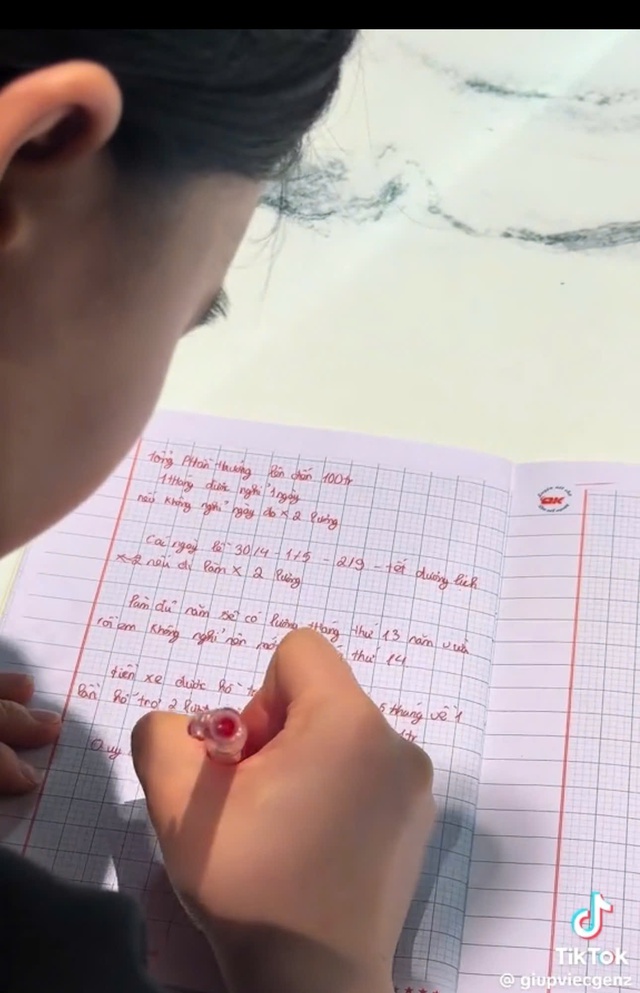 tổng phần thưởng lên đến 100tr
1 tháng được nghỉ 1 ngày
nếu không nghỉ ngày đó x 2 lương
Các ngày lễ 30/4 - 1/5 - 2/9 - tết dương lịch
nếu đi làm x 2 lương
làm đủ năm sẽ có lương tháng thứ 13 năm vừa
rồi em không nghỉ nên thứ 14
tiền xe được hỗ 5 tháng về 1
lần hỗ trợ 2 1tr
Quy
QK
TikTok
@giupviecgenz